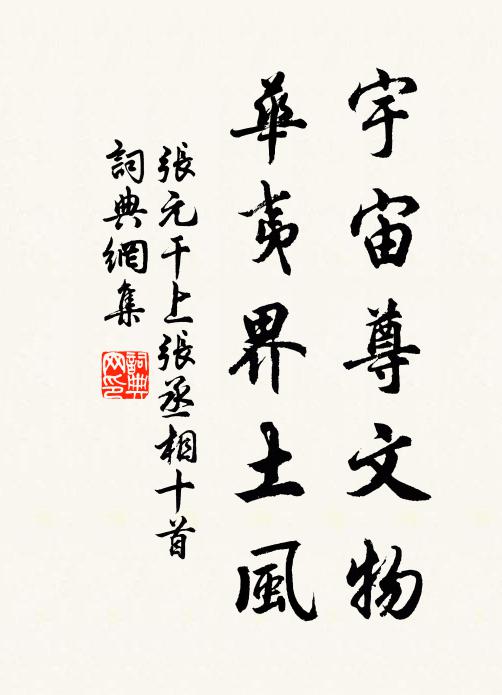 宇宙尊文物
華夷界土風
張元干上張丞相十首
詞典網集
詞典網印